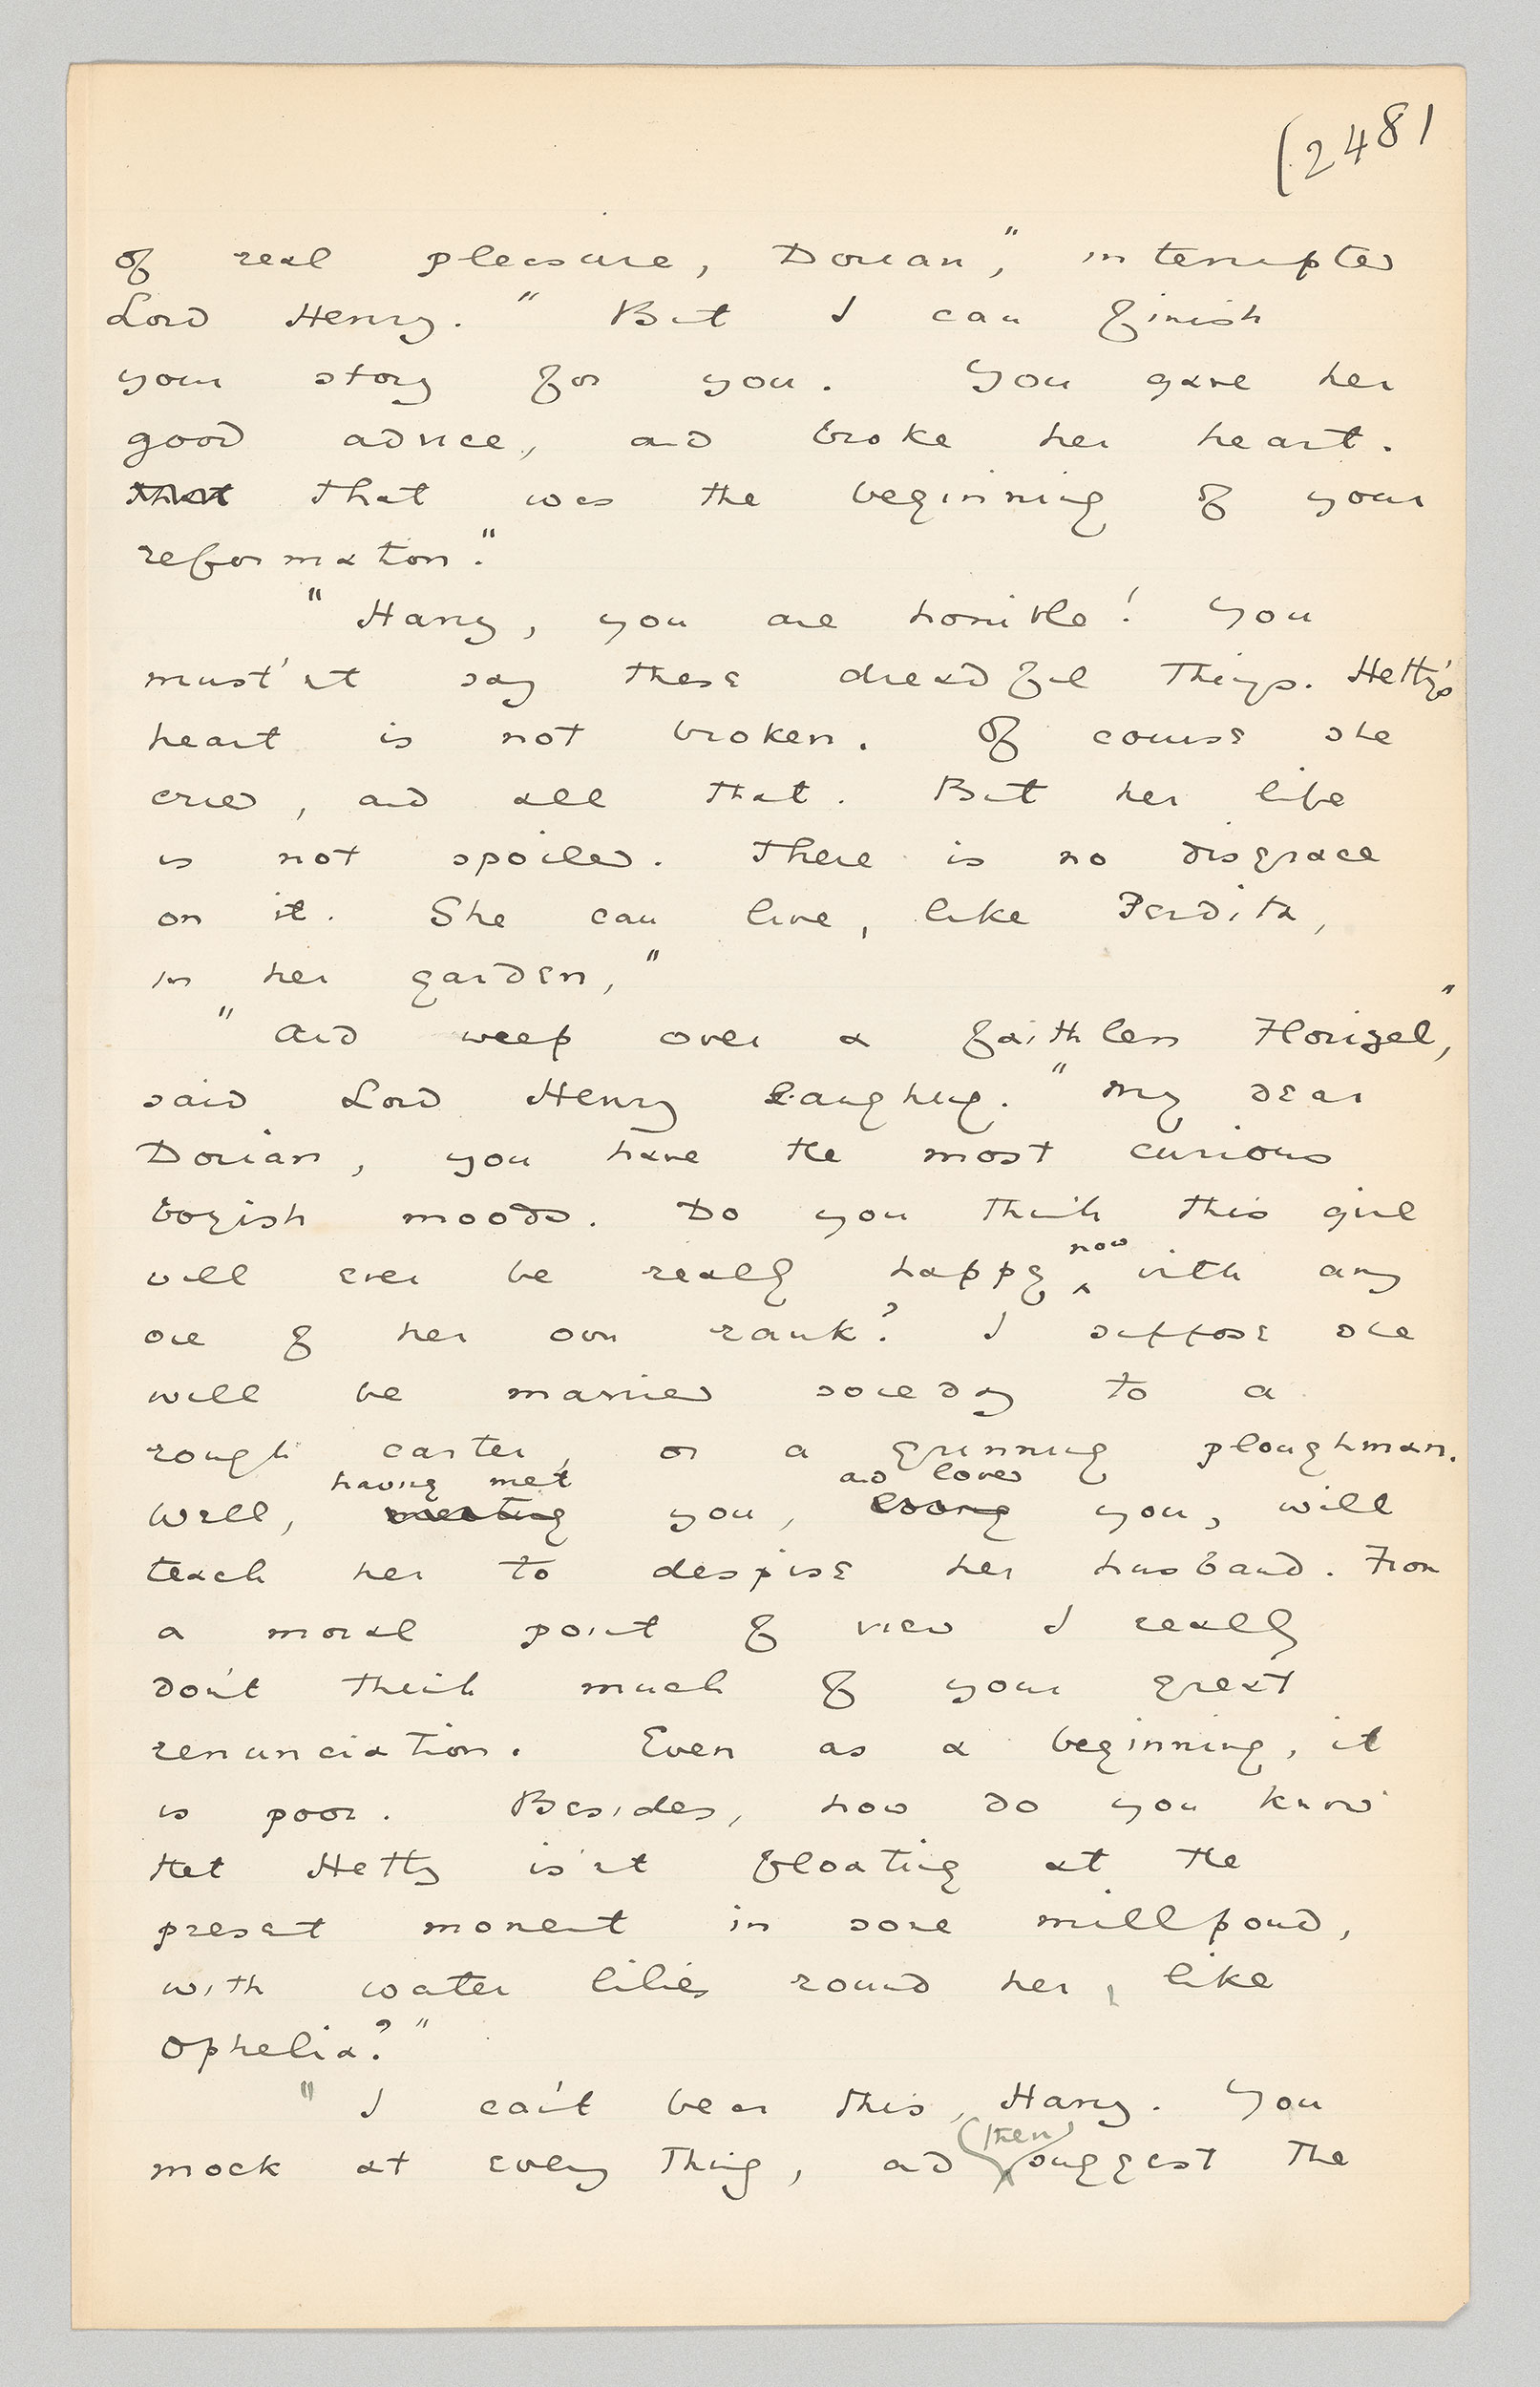 (248)
of real pleasure, Dorian," interrupted
Lord Henry. "But I can finish
your story for you. You gave her
good advice, and broke her heart.
that That was the beginning of your
reformation."
"Harry, you are horrible! You
must'nt say these dreadful things. Hetty's
heart is not broken. Of course she
cried, and all that. But her life
is not spoiled. There is no disgrace
on it. She can live, like Perdita,
in her garden,"
"And weep over a faithless Florizel,"
said Lord Henry laughing. "My dear
Dorian, you have the most curious
boyish moods. Do you think this girl
now
will ever be really happy ^ with any
one of her own rank? I suppose she
will be married someday to a
rough carter, or a grinning ploughman.
having met and loved
Well, meeting you, loving you, will
teach her to despise her husband. From
a moral point of view I really
don't think much of your great
renunciation. Even as a beginning, it
is poor. Besides, how do you know
that Hetty is'nt floating at the
present moment in some millpond,
with water lilies round her, like
Ophelia?"
"I can't bear this, Harry. You
then
mock at every thing, and suggest the